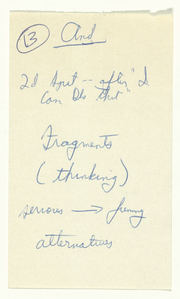 13 And
2d spot -- after "I
Can Do that
Fragments
(thinking)
serious → funny
alternatives